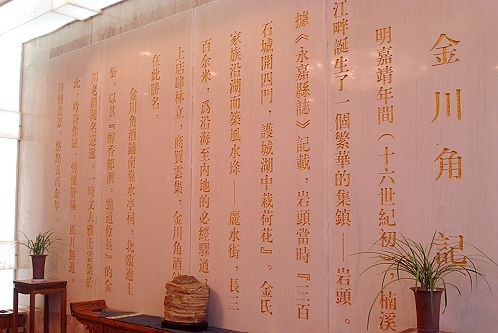 金川角記
明嘉靖年間（十六世紀初）楠溪
江畔誕生了一個繁華的集鎮——岩頭
據《永嘉縣誌》記載，岩頭當時『三百
石城開四門，護城湖中栽荷花』。金氏
家族沿湖而築風水埄——麗水街，長三
百余米，爲沿海至内地的必經驛道，
上店鋪林立，商賈雲集，金川角酒
在此勝名。
金川角酒鋪南靠水亭祠，北臨進士
街，以其『酒香郁冽，悠遠攸長』的金
川名酒聞名遐邇，一時文人雅士雲集於
此，吟詩作賦，情懷舒暢，風月無邊，
五百年。